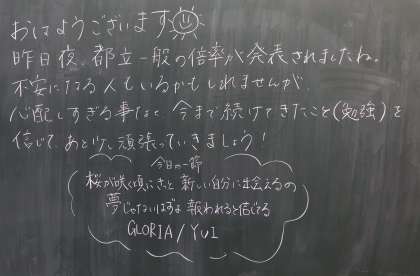 おはようございます
昨日夜、都立一般の倍率が発表されましたね。
不安になる人もいるかもしれませんが、
心配しすぎる事なく、今まで続けてきたこと(勉強)を
信じて、あと少し頑張っていきましょう！
今日の一節
桜が咲く頃にきっと 新しい自分に出会えるの
夢じゃないはずよ 報われると信じてる
GLORIA/YUI